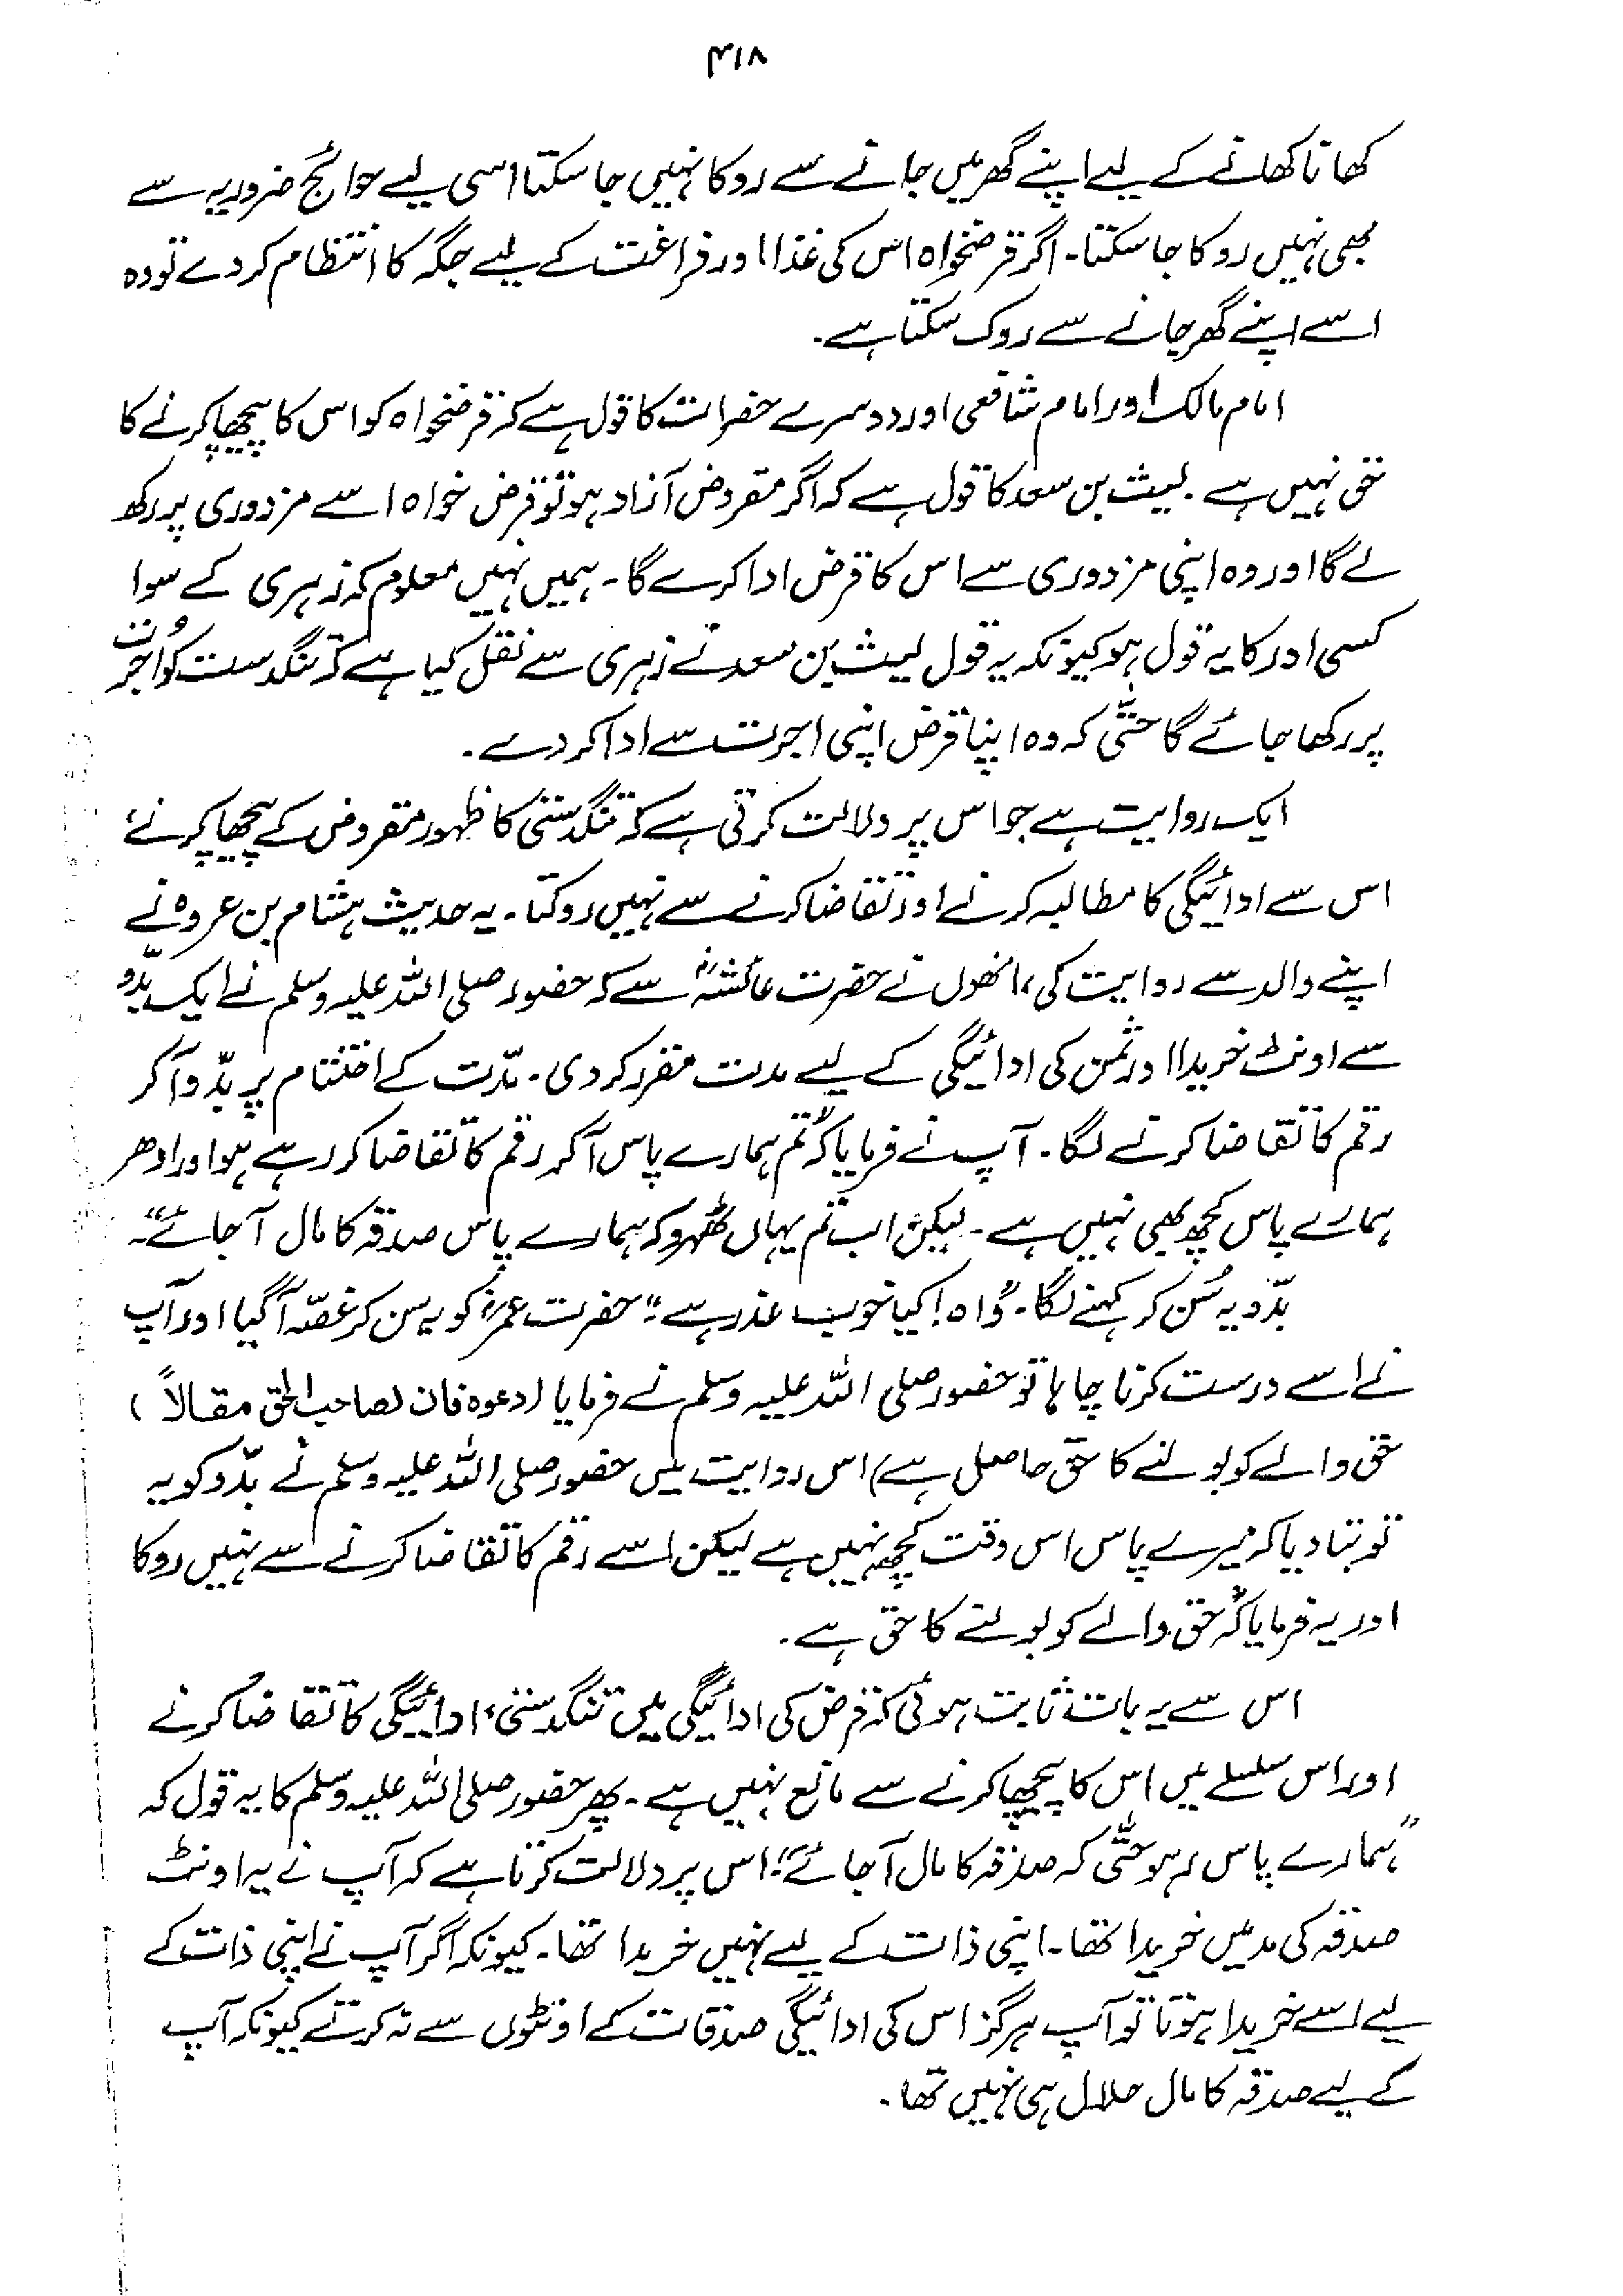 ۴۱۸
کھانا کھانے کے لیے اپنے گھر میں جانے سے روکا نہیں جا سکتا اسی لیے حوائج ضروریہ سے
بھی نہیں روکا جا سکتا۔ اگر قرضخواہ اس کی غذا اور فراغت کے لیے جگہ کا انتظام کر دے تو وہ
اسے اپنے گھر جانے سے روک سکتا ہے۔
امام مالک اور امام شافعی اور دوسرے حضرات کا قول ہے کہ قرضخواہ کو اس کا پیچھا کرنے کا
حق نہیں ہے۔ لیث بن سعد کا قول ہے کہ اگر مقروض آزاد ہو تو قرض خواہ اسے مزدوری پر رکھ
لے گا اور وہ اپنی مزدوری سے اس کا قرض ادا کرے گا۔ ہمیں نہیں معلوم کہ زہری کے سوا
کسی اور کا یہ قول ہو کیونکہ یہ قول لیث بن سعد نے زہری سے نقل کیا ہے کہ تنگدست کو اُجرت
پر رکھا جائے گا حتّٰی کہ وہ اپنا قرض اپنی اجرت سے ادا کر دے۔
ایک روایت ہے جو اس پر دلالت کرتی ہے کہ تنگدستی کا ظہور مقروض کے پیچھا کرنے،
اس سے ادائیگی کا مطالبہ کرنے اور تقاضا کرنے سے نہیں روکتا۔ یہ حدیث ہشام بن عروہ نے
اپنے والد سے روایت کی، انھوں نے حضرت عائشہؓ سے کہ حضور صلی اللہ علیہ وسلم نے ایک بدّو
سے اونٹ خریدا اور ثمن کی ادائیگی کے لیے مدت مقرر کر دی۔ مدّت کے اختتام پر بدّو آ کر
رقم کا تقاضا کرنے لگا۔ آپ نے فرمایا کہ "تم ہمارے پاس آ کر رقم کا تقاضا کر رہے ہو اور ادھر
ہمارے پاس کچھ بھی نہیں ہے۔ لیکن اب تم یہاں ٹھہرو کہ ہمارے پاس صدقہ کا مال آ جائے"۔
بدّو یہ سُن کر کہنے لگا۔ "واہ! کیا خوب عذر ہے" حضرت عمرؓ کو یہ سن کر غصّہ آ گیا اور آپ
نے اسے درست کرنا چاہا تو حضور صلی اللہ علیہ وسلم نے فرمایا (دعوہ فان لصاحب الحق مقالاً)
حق والے کو بولنے کا حق حاصل ہے) اس روایت میں حضور صلی اللہ علیہ وسلم نے بدّو کو یہ
تو بتا دیا کہ میرے پاس اس وقت کچھ نہیں ہے لیکن اسے رقم کا تقاضا کرنے سے نہیں روکا
اور یہ فرمایا کہ "حق والے کو بولنے کا حق ہے۔
اس سے یہ بات ثابت ہوئی کہ قرض کی ادائیگی میں تنگدستی، ادائیگی کا تقاضا کرنے
اور اس سلسلے میں اس کا پیچھا کرنے سے مانع نہیں ہے۔ پھر حضور صلی اللہ علیہ وسلم کا یہ قول کہ
"ہمارے پاس رہو حتّٰی کہ صدقہ کا مال آ جائے"؛ اس پر دلالت کرتا ہے کہ آپ نے یہ اونٹ
صدقہ کی مد میں خریدا تھا۔ اپنی ذات کے لیے نہیں خریدا تھا۔ کیونکہ اگر آپ نے اپنی ذات کے
لیے اسے خریدا ہوتا تو آپ ہرگز اس کی ادائیگی صدقات کے اونٹوں سے نہ کرتے کیونکہ آپ
کے لیے صدقہ کا مال حلال ہی نہیں تھا۔